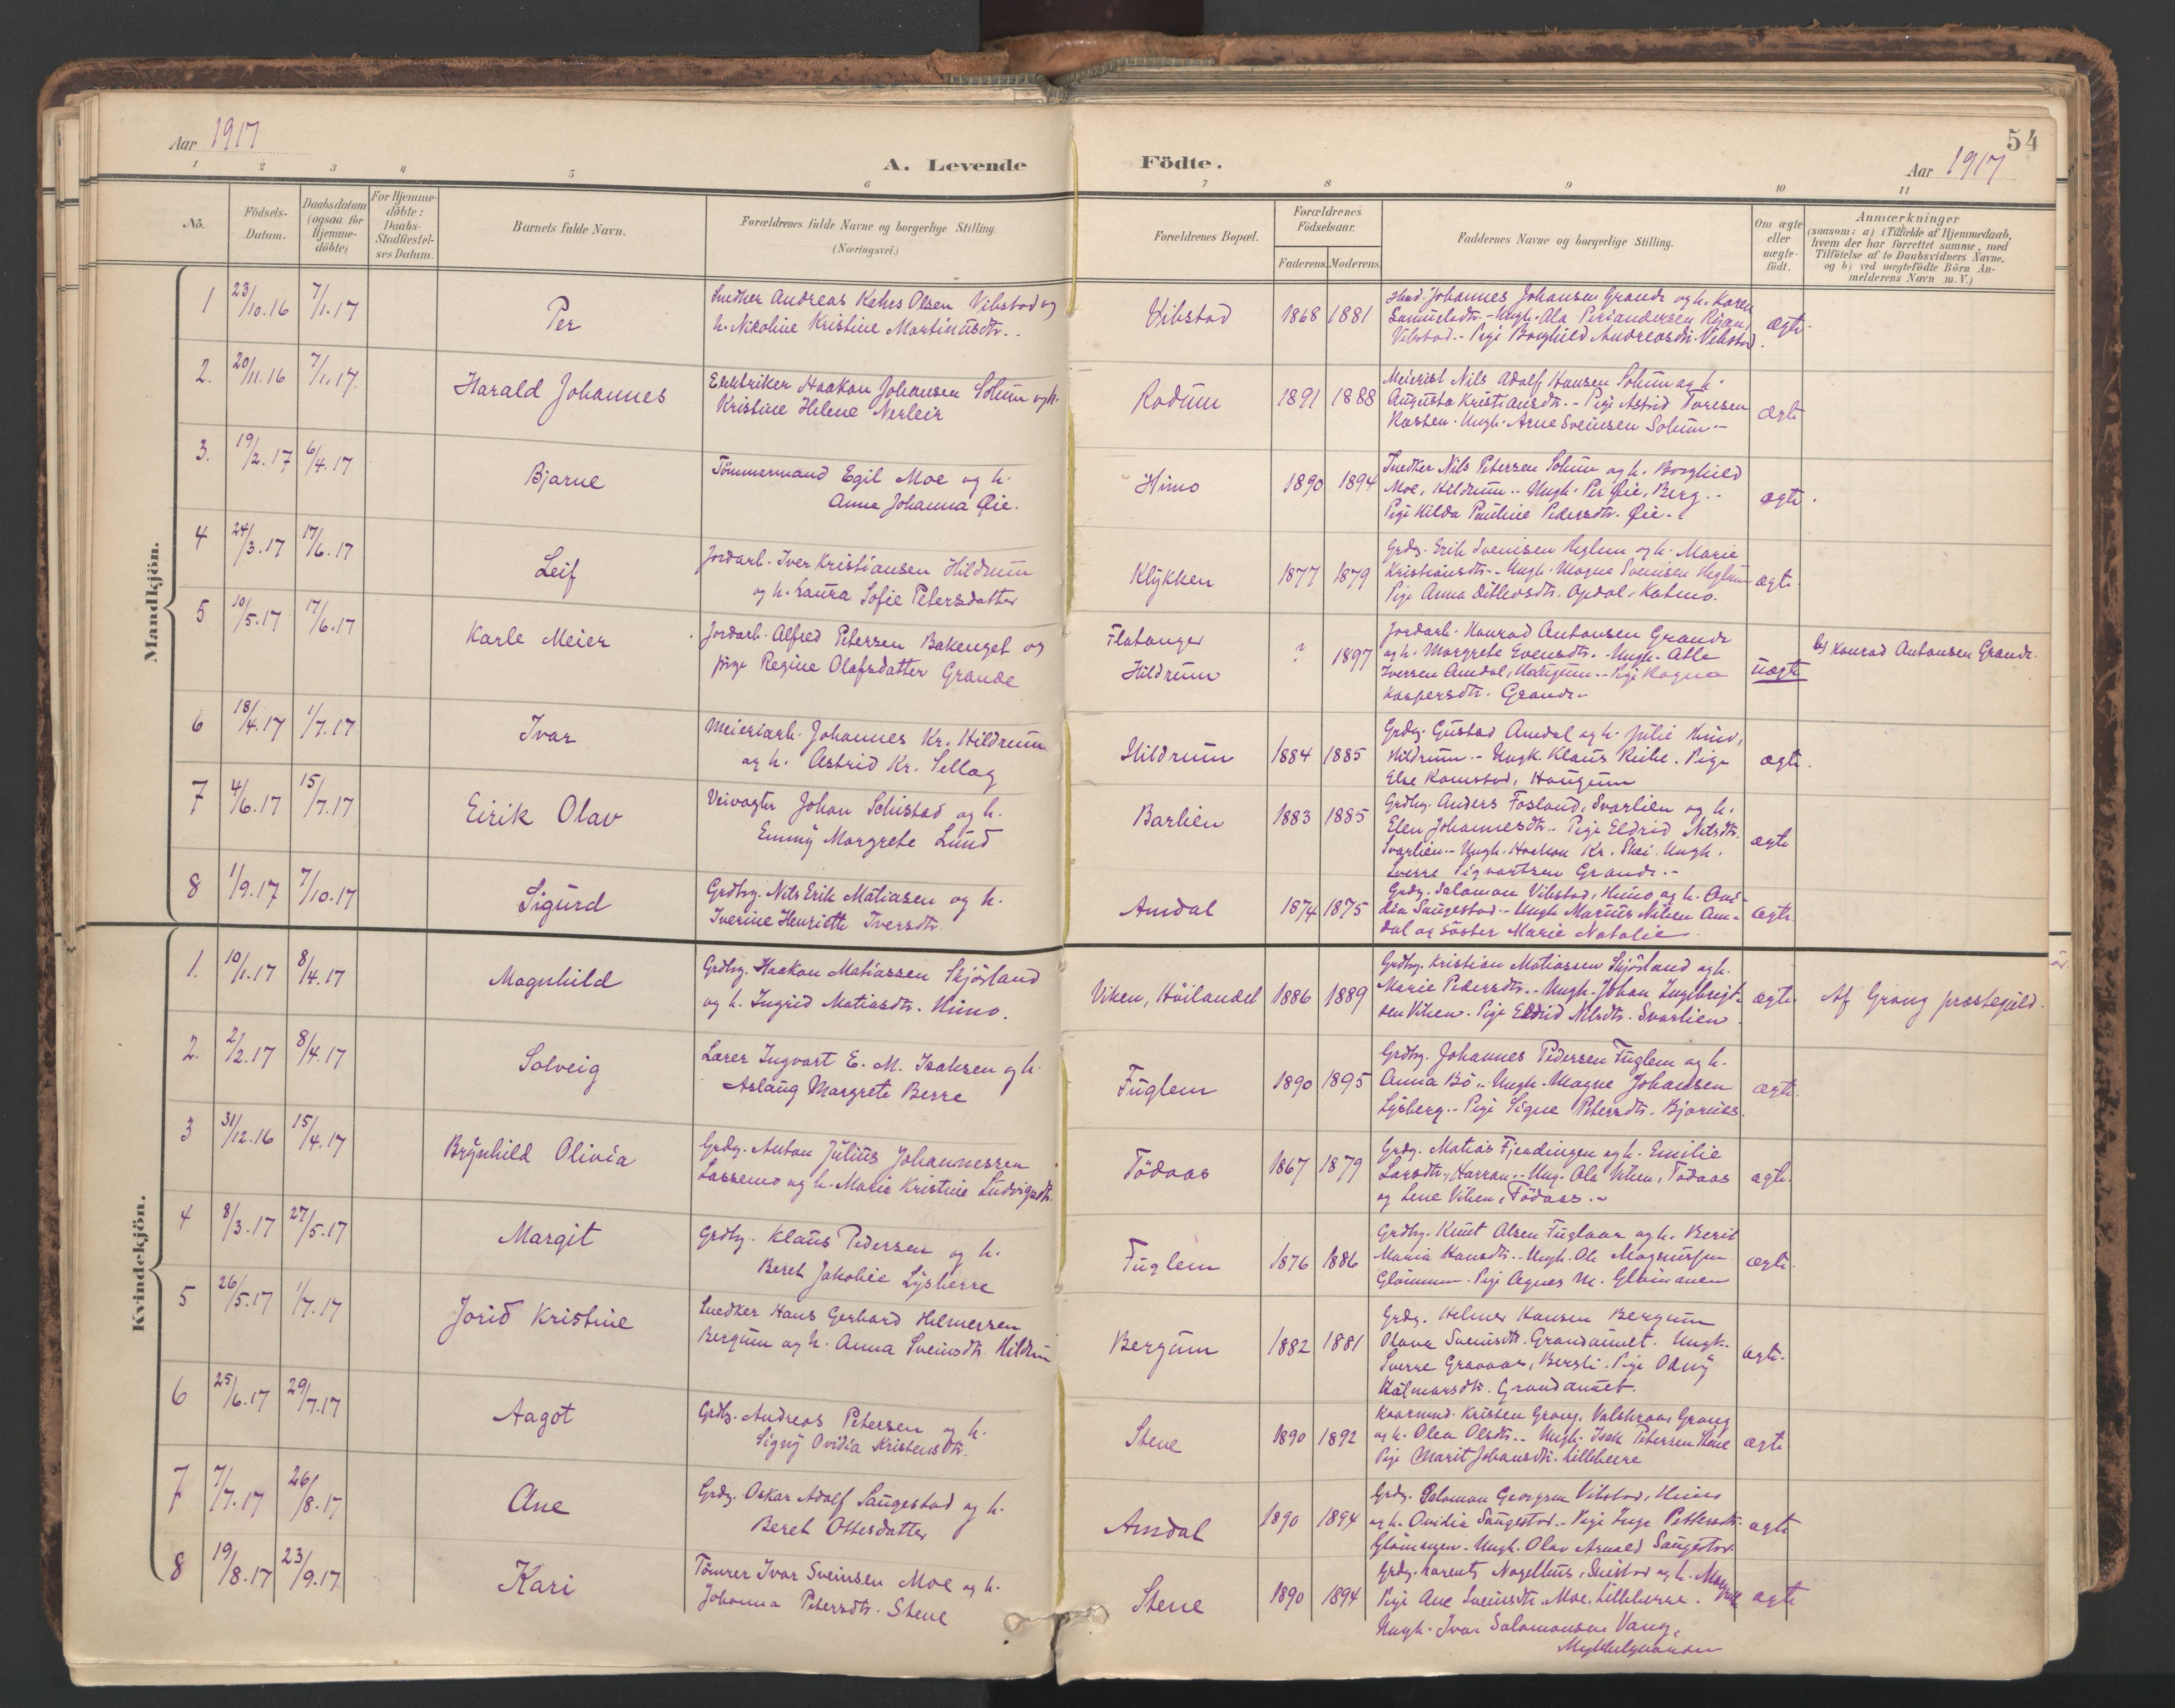 Aar 1917
A. Levende Födte.
54
Aar 1917
1 2 3 4 5 6 7 8 9 10 11
No.
Födsels-Datum.
Daabsdatum (ogsaa for Hjemme-döbte)
For Hjemme-döbte: Daabs-Stadfæstel-ses Datum.
Barnets fulde Navn.
Forældrenes fulde Navne og borgerlige Stilling. (Næringsvei.)
Forældrenes Bopæl.
Forældrenes Födselsaar.
Faderens. Moderens.
Faddernes Navne og borgerlige Stilling.
Om ægte eller uægte-födt.
Anmærkninger
(saasom: a) i Tilfælde af Hjemmedaab, hvem der har forrettet samme, med Tilföielse af to Daabsvidners Navne, og b) ved uægtefödte Börn An-melderens Navn m. V.)
Mandkjön.
1 23/10.16 7/1.17 Per
Snedker Andreas Olsen Vibstad og
h. Nikoline Kristine Martinusdtr.
Vibstad 1868 1881
Johannes Johansen Grande og h. Karen
Samuelsdtr. - Ungk. Ola
Vibstad. - Pige Borghild Andreasdtr. Vibstad.
ægte.
2. 20/11.16 7/1.17. Harald Johannes
Elektriker Haakon Johansen Solum og h.
Kristine Helene Nerleir
Rodum 1891 1888
Meierist Nils Adolf Hansen Solum og h.
Augusta Kristiansdtr. - Pige Astrid Toresen
Ungk. Arne Sveinsen Solum -
ægte
3. 19/2.17 6/4.17 Bjarne
Tömmermand Egil Moe og h.
Anna Johanna Øie.
Himo 1890 1894
Snedker Nils Petersen Solum og h. Borghild
Moe, Hildrum.. Ungk. Per Øie, Berg..
Pige Hilda Pauline Pedersdtr. Øie.
ægte.
4 24/3.17 17/6.17 Leif
Jordarb. Iver Kristiansen Hildrum
og h. Laura Sofie Petersdatter
Klykken 1877 1879
Grdbr. Erik Sveinsen Heglum og h. Marie
Kristiansdtr. - Ungk. Magne Sveinsen Heglum
Pige Anna Opdal,
ægte.
5 10/5.17 17/6.17 Karle Meier
Jordarb. Alfred Petersen Bakenget og
pige Regine Olafsdatter Grande
Flatanger
Hildrum
? 1897
Jordarb. Konrad Antonsen Grande
og h. Margrete Evensdtr. - Ungk. Atle
Iversen Amdal, - Pige Ragna
Kaspersdtr. Grande. -
uægte
b) Konrad Antonsen Grande.
6 18/4.17 1/7.17 Ivar
Meieriarb. Johannes Kr. Hildrum
og h. Astrid Kr. Sellæg
Hildrum 1884 1885
Grdbr. Gustav Amdal og h. Julie Himo,
Hildrum. - Ungk. Klaus . Pige
Else , Haugum
ægte.
7 4/6.17 15/7.17 Eirik Olav
Veivogter Johan Schistad og h.
Emmy Margrete Lund
Barlien 1883 1885
Grdbr. Anders Fosland, Svarlien og h.
Elen Johannesdtr.. Pige Eldrid Nilsdtr.
Svarlien. - Ungk. Haakon Kr. Skei. Ungk.
Sverre Sigvartsen Grande. -
ægte
8 1/9.17 7/10.17 Sigurd
Grdbr. Nils Erik Matiasen og h.
Iverine Henriette Iversdtr.
Amdal 1874 1875
Grdbr. Salomon Vibstad, Himo og h. Ovi-
dia Saugestad. - Ungk. Marius Nilsen Am-
dal og söster Marie Natalie
ægte.
Kvindekjön.
1. 10/1.17 8/4.17 Magnhild
Grdbr. Haakon Matiassen Skjösland
og h. Ingrid Matiasdtr. Himo.
Viken, Höilandet 1886 1889
Grdbr. Kristian Matiassen Skjösland og h.
Marie Pedersdtr. - Ungk. Johan Ingebrigt-
sen Viken. Pige Eldrid Nilsdtr. Svarlien.
ægte.
Af Grong prestegjeld.
2. 2/2.17 8/4.17 Solveig
Lærer Ingvart E. M. Isaksen og h.
Aslaug Margrete Berre
Fuglem 1890 1895
Grdbr. Johannes Pedersen Fuglem og h.
Anna Bö.. Ungk. Magne Johansen
Lysberg.. Pige Signe Petersdtr. Bjørnes.
ægte.
3 31/12.16 15/4.17 Brynhild Olivia
Grdbr. Anton Julius Johannessen
Lassemo og h. Marie Kristine Ludvigsdtr.
Tödaas 1867 1879
Grdbr. Matias Fjerdingen og h. Emilie
Larsdtr., Harran.. Ung. Ola Viken, Tödaas
og Lene Viken, Tödaas. -
ægte.
4 8/3.17 27/5.17 Margit
Grdbr. Klaus Pedersen og h.
Beret Jakobie Lysberre
Fuglem 1876 1886
Grdbr. Knut Olsen Fuglaar og h. Berit
Maria Hansdtr.. Ungk. Ole Magnussen
Glömmen. Pige Agnes M. Glömmen
ægte.
5 26/5.17 1/7.17 Jorid Kristine
Snedker Hans Gerhard Helmersen
Bergum og h. Anna Sveinsdtr. Hildrum
Bergum 1882 1881
Grdbr. Helmer Hansen Bergum
Olava Sveinsdtr. Grandaunet. Ungk.
Sverre . Pige Odny
Hilmarsdtr. Grandaunet.
ægte.
6 25/6.17 29/7.17 Aagot
Grdbr. Andreas Petersen og h.
Signy Ovidia Kristensdtr.
Stene 1890 1892
Kristen Grong, Valskraa, Grong
og h. Olea Olsdtr.. Ungk. Isak Petersen Stene
Pige Marit Johansdtr. Lilleberre
ægte
7 7/7.17 26/8.17 Ane
Grdbr. Oskar Adolf Saugestad og h.
Beret Ottesdatter
Amdal 1890 1894
Grdbr. Salomon Georgsen Vibstad, Himo
og h. Ovidia Saugestad. - Pige Inga Pettersdtr.
Glömmen. Ungk. Olav Arnold Saugestad
ægte
8 19/8.17 23/9.17 Kari
Tömrer Ivar Sveinsen Moe og h.
Johanna Petersdtr. Stene
Stene 1890 1894
Grdbr. Laurents og h.
Pige Ane Sveinsdtr. Moe, Lilleberre.
Ungk. Ivar Salomonsen Vang,
ægte